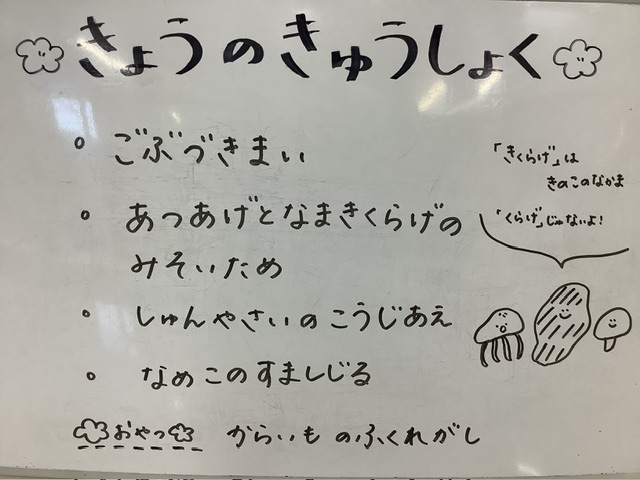 きょうのきゅうしょく
ごぶづきまい
あつあげとなまきくらげの
みそいため
しゅんやさいのこうじあえ
なめこのすましじる
おやつ からいものふくれがし
「きくらげ」は
きのこのなかま
「くらげ」じゃないよ!